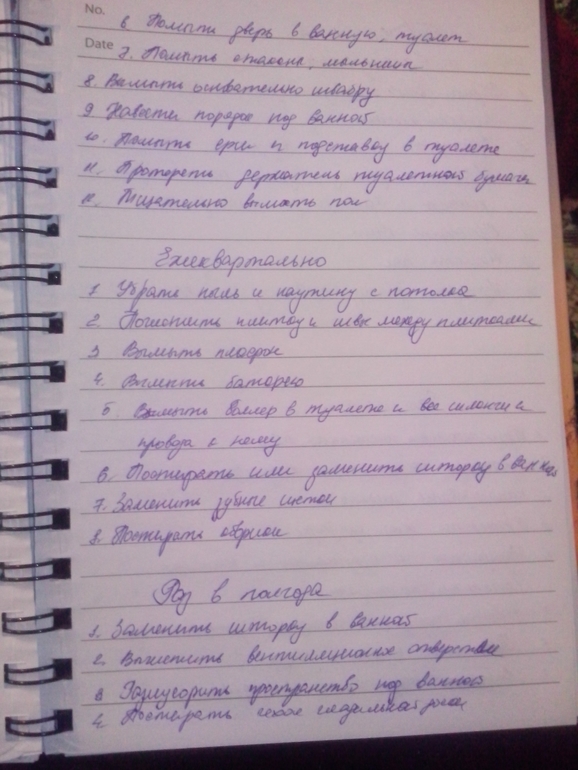 No.
6. Помыть дверь в ванную, туалет
Date 7. Помыть стаканы, мыльницы
8. Вымыть основательно швабру
9 Навести порядок под ванной
10. Помыть ерш и подставку в туалете
11. Протереть держатель туалетной бумаги
12. Тщательно вымыть пол
Ежеквартально
1. Убрать пыль и паутину с потолка
2. Почистить плитку и швы между плитками
3 Вымыть плафон
4. Вымыть батарею
5. Вымыть боллер в туалете и все шланги и
провода к нему
6. Постирать или заменить шторку в ванной
7. Заменить зубные щетки
8. Постирать коврики
Раз в полгода
1. Заменить шторку в ванной
2. Вычистить вентиляционные отверстия
3 Размусорить пространство под ванной
4. Постирать чехол гладильной доски